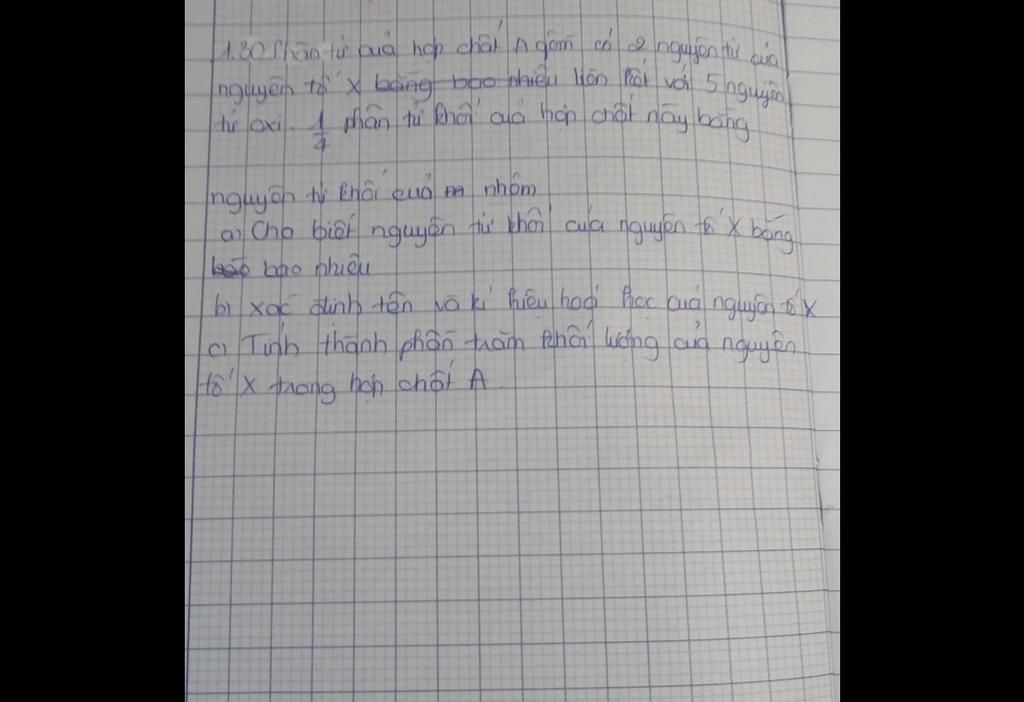 1.30 Phân tử quả hợp chất A gồm có 2 nguyên tử của
nguyên tố X bằng bao nhiêu liên kết với 5 nguyên
tử oxi. 1/4 phân tử khối của hợp chất này bằng
nguyên tử khối của m nhôm
a) Cho biết nguyên tử khối của nguyên tố X bằng
bao nhiêu
b) xác định tên và kí hiệu hoá học của nguyên tố X
c) Tính thành phần trăm khối lượng của nguyên
tố X trong hợp chất A